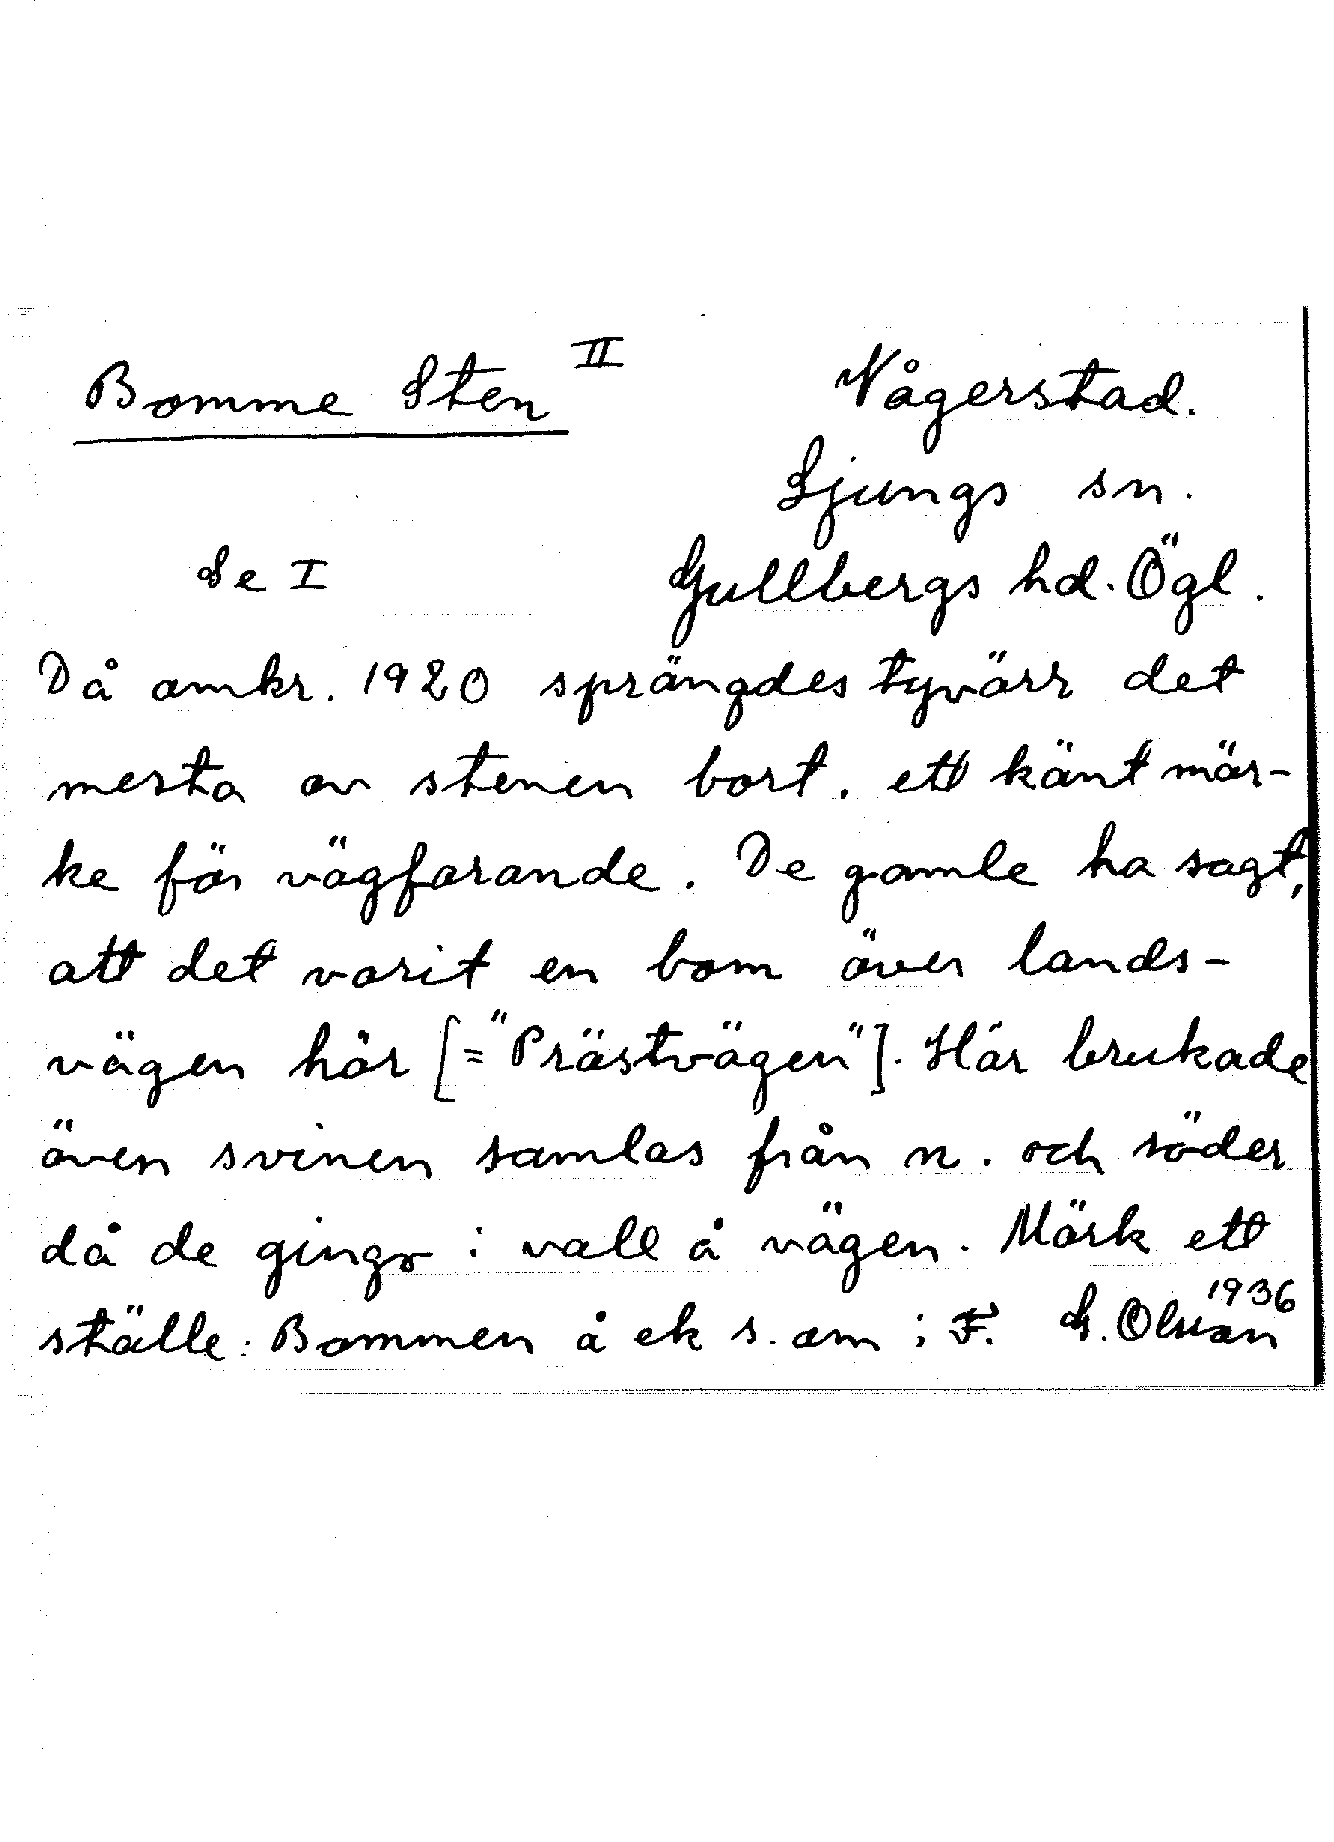 Bomme Sten II
Vågerstad.
Ljungs sn.
Se I
Gullbergs hd. Ögl.
Då omkr. 1920 sprängdes tyvärr det
mesta av stenen bort, ett känt mär-
ke för vägfarande. De gamle ha sagt,
att det varit en bom över lands-
vägen här [="Prästvägen"]. Här brukade
även svinen samlas från n. och söder
då de gingo i vall å vägen. Märk ett
ställe: Bommen å ek s. om i F. G. Olsson
1936